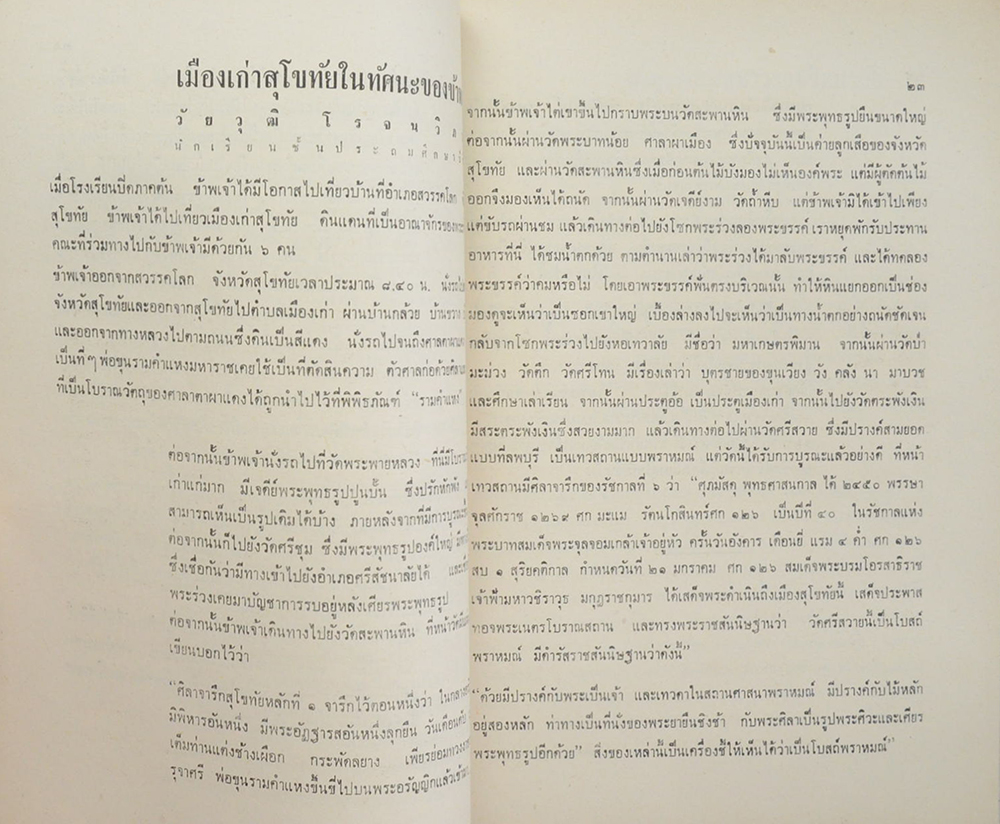 เมืองเก่าสุโขทัยในทัศนะของข้า
วัยวุฒิ โรจนวิ
นักเรียนชั้นประถมศึกษา
เมื่อโรงเรียนปิดภาคต้น ข้าพเจ้าได้มีโอกาสไปเที่ยวบ้านที่อำเภอสวรรคโลก
สุโขทัย ข้าพเจ้าได้ไปเที่ยวเมืองเก่าสุโขทัย ดินแดนที่เป็นอาณาจักรของ
คณะที่ร่วมทางไปกับข้าพเจ้ามีด้วยกัน ๖ คน
ข้าพเจ้าออกจากสวรรคโลก จังหวัดสุโขทัยเวลาประมาณ ๘.๔๐ น. นั่งรถ
จังหวัดสุโขทัยและออกจากสุโขทัยไปตำบลเมืองเก่า ผ่านบ้านกล้วย บ้าน
และออกจากทางหลวงไปตามถนนซึ่งดินเป็นสีแดง นั่งรถไปจนถึงศาลตาผาแดง
เป็นที่ๆ พ่อขุนรามคำแหงมหาราชเคยใช้เป็นที่ตัดสินความ ตัวศาลก่อด้วยศิลา
ที่เป็นโบราณวัตถุของศาลาตาผาแดงได้ถูกนำไปไว้ที่พิพิธภัณฑ์ “รามคำแหง
ต่อจากนั้นข้าพเจ้านั่งรถไปที่วัดพระพายหลวง ที่นี่มีโบราณ
เก่าแก่มาก มีเจดีย์พระพุทธรูปปูนปั้น ซึ่งปรักหักพัง
สามารถเห็นเป็นรูปเดิมได้บ้าง ภายหลังจากที่มีการบูรณะ
ต่อจากนั้นก็ไปยังวัดศรีชุม ซึ่งมีพระพุทธรูปองค์ใหญ่
ซึ่งเชื่อกันว่ามีทางเข้าไปยังอำเภอศรีสัชนาลัยได้ และ
พระร่วงเคยมาบัญชาการรบอยู่หลังเศียรพระพุทธรูป
ต่อจากนั้นข้าพเจ้าเดินทางไปยังวัดสะพานหิน ที่หน้าวัด
เขียนบอกไว้ว่า
“ศิลาจารึกสุโขทัยหลักที่ ๑ จารึกไว้ตอนหนึ่งว่า ในกลาง
มีพิหารอันหนึ่ง มีพระอัฏฐารสอันหนึ่งลุกยืน วันเดือนดับ
เต็มท่านแต่งช้างเผือก กระพัดลยาง เพียรย่อม
รุจาศรี พ่อขุนรามคำแหงขึ้นขี่ไปบนพระอรัญญิกแล้วเข้า
๒๓
จากนั้นข้าพเจ้าไต่เขาขึ้นไปกราบพระบนวัดสะพานหิน ซึ่งมีพระพุทธรูปยืนขนาดใหญ่
ต่อจากนั้นผ่านวัดพระบาทน้อย ศาลาผาเมือง ซึ่งปัจจุบันนี้เป็นค่ายลูกเสือของจังหวัด
สุโขทัย และผ่านวัดสะพานหินซึ่งเมื่อก่อนต้นไม้บังมองไม่เห็นองค์พระ แต่มีผู้ตัดต้นไม้
ออกจึงมองเห็นได้ถนัด จากนั้นผ่านวัดเจดีย์งาม วัดถ้ำหีบ แต่ข้าพเจ้ามิได้เข้าไปเพียง
แต่ขับรถผ่านชม แล้วเดินทางต่อไปยังโซกพระร่วงลองพระขรรค์ เราหยุดพักรับประทาน
อาหารที่นี่ ได้ชมน้ำตกด้วย ตามตำนานเล่าว่าพระร่วงได้มาลับพระขรรค์ และได้ทดลอง
พระขรรค์ว่าคมหรือไม่ โดยเอาพระขรรค์ฟันตรงบริเวณนั้น ทำให้หินแยกออกเป็นช่อง
มองดูจะเห็นว่าเป็นซอกเขาใหญ่ เบื้องล่างลงไปจะเห็นว่าเป็นทางน้ำตกอย่างถนัดชัดเจน
กลับจากโซกพระร่วงไปยังหอเทวาลัย มีชื่อว่า มหาเกษตรพิมาน จากนั้นผ่านวัดป่า
มะม่วง วัดตึก วัดศรีโทน มีเรื่องเล่าว่า บุตรชายของขุนเวียง วัง คลัง นา มาบวช
และศึกษาเล่าเรียน จากนั้นผ่านประตูอ้อ เป็นประตูเมืองเก่า จากนั้นไปยังวัดตระพังเงิน
มีสระตระพังเงินซึ่งสวยงามมาก แล้วเดินทางต่อไปผ่านวัดศรีสวาย ซึ่งมีปรางค์สามยอด
แบบที่ลพบุรี เป็นเทวสถานแบบพราหมณ์ แต่วัดนี้ได้รับการบูรณะแล้วอย่างดี ที่หน้า
เทวสถานมีศิลาจารึกของรัชกาลที่ ๖ ว่า “ศุภมัสดุ พุทธศาสนกาล ได้ ๒๔๕๐ พรรษา
จุลศักราช ๑๒๖๙ ศก มะแม รัตนโกสินทร์ศก ๑๒๖ เป็นปีที่ ๔๐ ในรัชกาลแห่ง
พระบาทสมเด็จพระจุลจอมเกล้าเจ้าอยู่หัว ครั้นวันอังคาร เดือนยี่ แรม ๔ ค่ำ ศก ๑๒๖
สบ ๑ สุริยคติกาล กำหนดวันที่ ๒๑ มกราคม ศก ๑๒๖ สมเด็จพระบรมโอรสาธิราช
เจ้าฟ้ามหาวชิราวุธ มกุฎราชกุมาร ได้เสด็จพระดำเนินถึงเมืองสุโขทัยนี้ เสด็จประพาส
ทอจพระเนตรโบราณสถาน และทรงพระราชสันนิษฐานว่า วัดศรีสวายนี้เป็นโบสถ์
พราหมณ์ มีดำรัสราชสันนิษฐานว่าดังนี้”
“ด้วยมีปรางค์กับพระเป็นเจ้า และเทวดาในสถานศาสนาพราหมณ์ มีปรางค์กับไม้หลัก
อยู่สองหลัก ท่าทางเป็นที่นั่งของพระยายืนชิงช้า กับพระศิลาเป็นรูปพระศิวะและเศียร
พระพุทธรูปอีกด้วย” สิ่งของเหล่านี้เป็นเครื่องชี้ให้เห็นได้ว่าเป็นโบสถ์พราหมณ์”